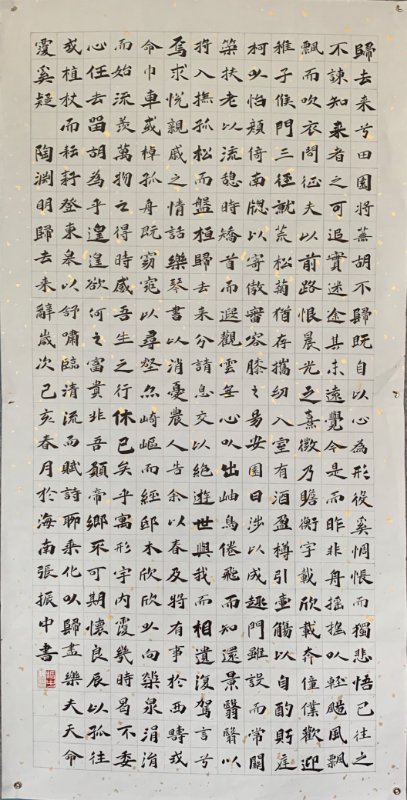 歸去来兮田園將蕪胡不歸既自以心為形役奚惆悵而獨悲悟已往之
不諫知来者之可追實迷途其未遠覺今是而昨非舟搖搖以輕颺風飄
飄而吹衣問征夫以前路恨晨光之熹微乃瞻衡宇載欣載奔僮僕歡迎
稚子候門三徑就荒松菊猶存攜幼入室有酒盈樽引壺觴以自酌眄庭
柯以怡顏倚南牕以寄傲審容膝之易安園日涉以成趣門雖設而常關
策扶老以流憩時矯首而遐觀雲無心以出岫鳥倦飛而知還景翳翳以
将入撫孤松而盤桓歸去来兮請息交以絶遊世與我而相遺復駕言兮
焉求悅親戚之情話樂琴書以消憂農人告余以春及將有事於西疇或
命巾車或棹孤舟既窈窕以尋壑亦崎嶇而經邱木欣欣以向榮泉涓涓
而始流羨萬物之得時感吾生之行休已矣乎寓形宇内復幾時曷不委
心任去留胡為乎遑遑欲何之富貴非吾願帝鄉不可期懷良辰以孤往
或植杖而耘耔登東皋以舒嘯臨清流而賦詩聊乘化以歸盡樂夫天命
復奚疑 陶淵明歸去来辭歲次己亥春月於海南張振中書